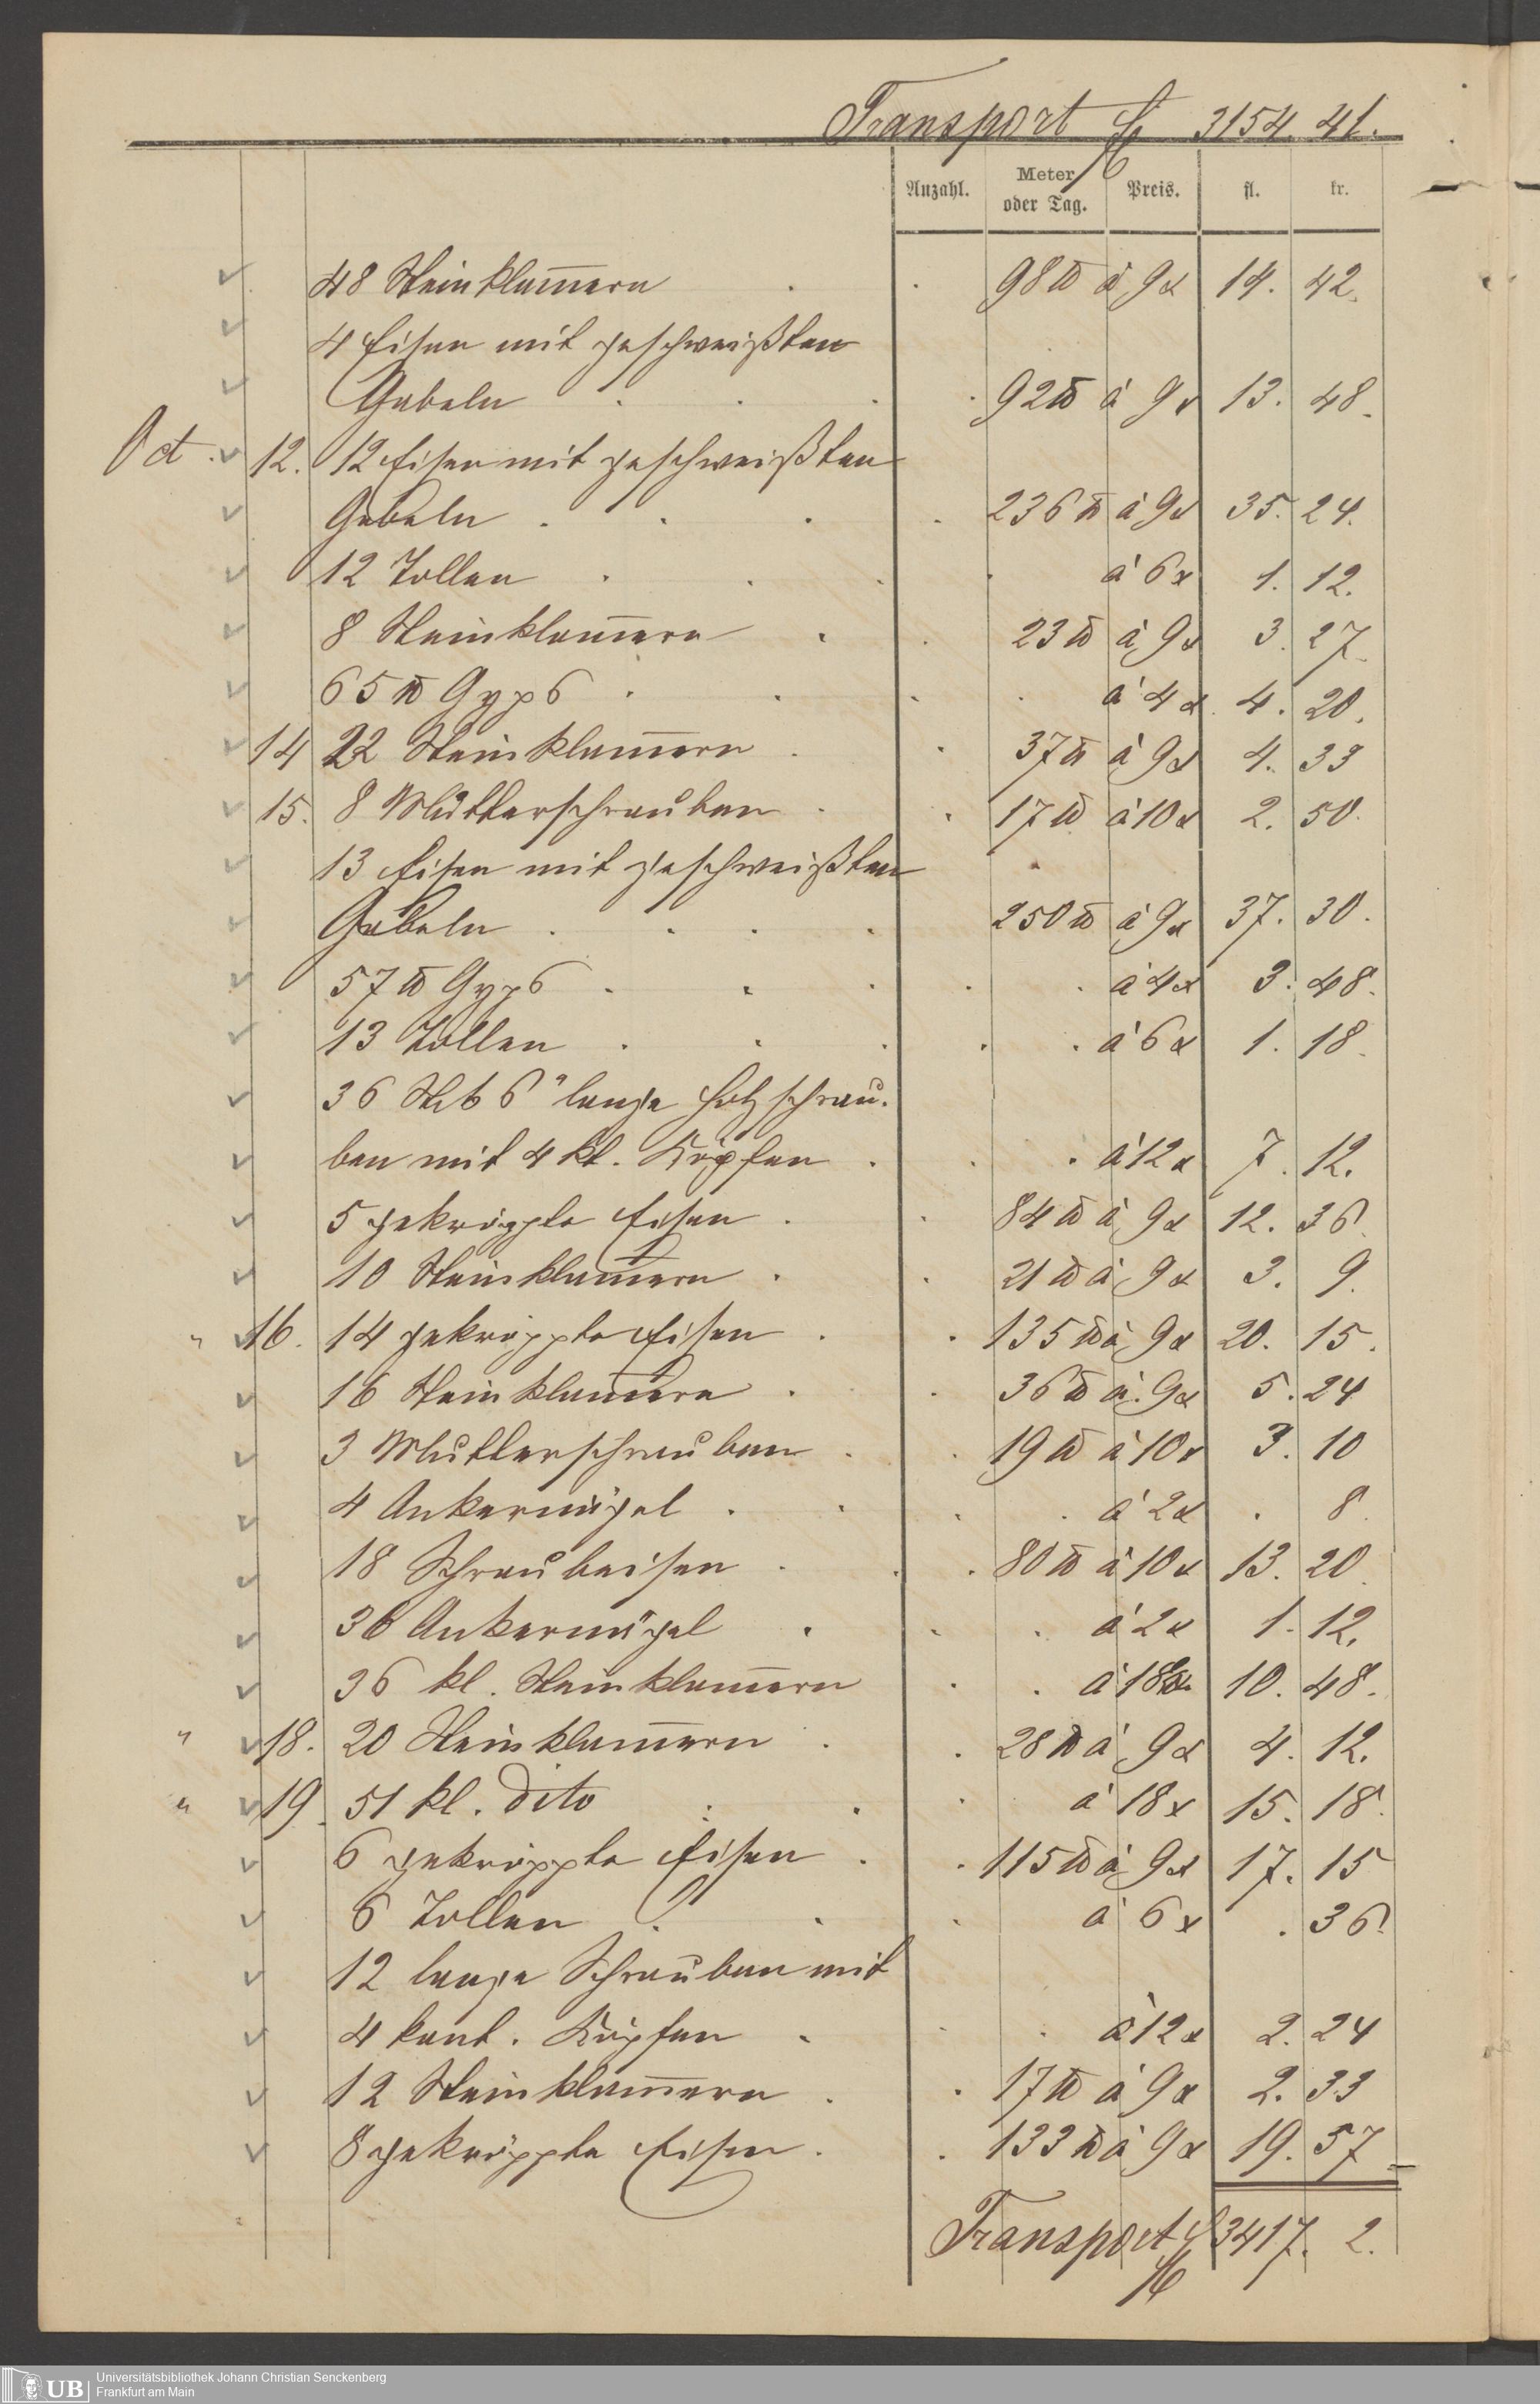 Transport fl 3154. 41.
Anzahl. Meter oder Tag. Preis. fl. kr.
48 Steinklam̅ern . . 98 ℔ à 9x 14. 42.
4 Eisen mit geschweißten
Gabeln . . . . 92 ℔ à 9x 13. 48.
Oct. 12. 12 Eisen mit geschweißten
Gabeln . . . . 236 ℔ à 9x 35. 24.
12 Tollen . . . . à 6x 1. 12.
8 Steinklam̅ern . . 23 ℔ à 9x 3. 27.
65 ℔ Gyps . . . . à 4x 4. 20.
14 22 Steinklam̅ern . . 37 ℔ à 9x 4. 33
15. 8 Mutterschrauben . . 17 ℔ à 10x 2. 50.
13 Eisen mit geschweißten
Gabeln . . . . 250 ℔ à 9x 37. 30.
57 ℔ Gyps . . . . . à 4x 3. 48.
13 Tollen . . . . . à 6x 1. 18.
36 Stck 6" lange Holzschrau-
ben mit 4 kt. Köpfen . . . à 12x 7. 12.
5 gekröppte Eisen . . 84 ℔ à 9x 12. 36.
10 Steinklam̅ern . . 21 ℔ à 9x 3. 9.
" 16. 14 gekröppte Eisen . . 135 ℔ à 9x 20. 15.
16 Steinklam̅ern . . 36 ℔ à 9x 5. 24
3 Mutterschrauben . . 19 ℔ à 10x 3. 10
4 Ankernägel . . . . à 2x . 8.
18 Schraubeisen . . . 80 ℔ à 10x 13. 20.
36 Ankernägel . . . à 2x 1. 12.
36 kl. Steinklam̅ern . . à 18x 10. 48.
" 18. 20 Steinklam̅ern . . 28 ℔ à 9x 4. 12.
" 19. 51 kl. dito . . . à 18x 15. 18.
6 gekröppte Eisen . . 115 ℔ à 9x 17. 15
6 Tollen . . . à 6x . 36.
12 lange Schrauben mit
4 kant. Köpfen . . . à 12x 2. 24
12 Steinklam̅ern . . 17 ℔ à 9x 2. 33
8 gekröppte Eisen . . 133 ℔ à 9x 19. 57
Transport fl 3417. 2.
UB
Universitätsbibliothek Johann Christian Senckenberg
Frankfurt am Main